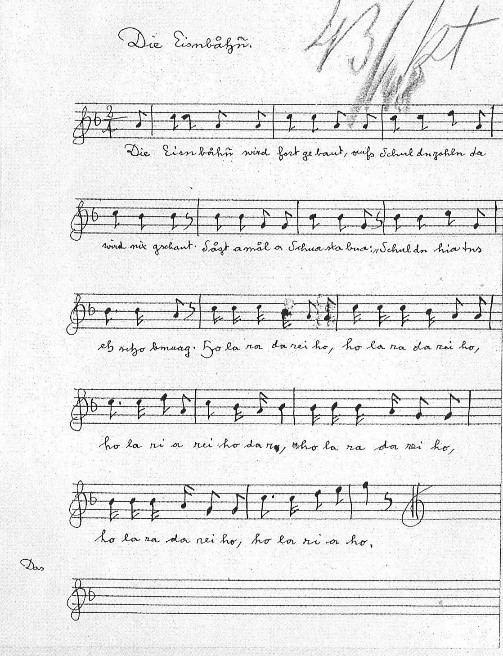 Die Eisnbåhñ.
Die Eisnbåhñ wird fort gebaut, aufs Schuldnzohln da
wird nix gschaut. Sågt amål a Schuasta bua: „Schuldn hia tns
eh scho gmuag. Ho la ra da rei ho, ho la ra da rei ho,
ho la ri a rei ho da ro, ho la ra da rei ho,
ho la ra da rei ho, ho la ri a ho.
Das